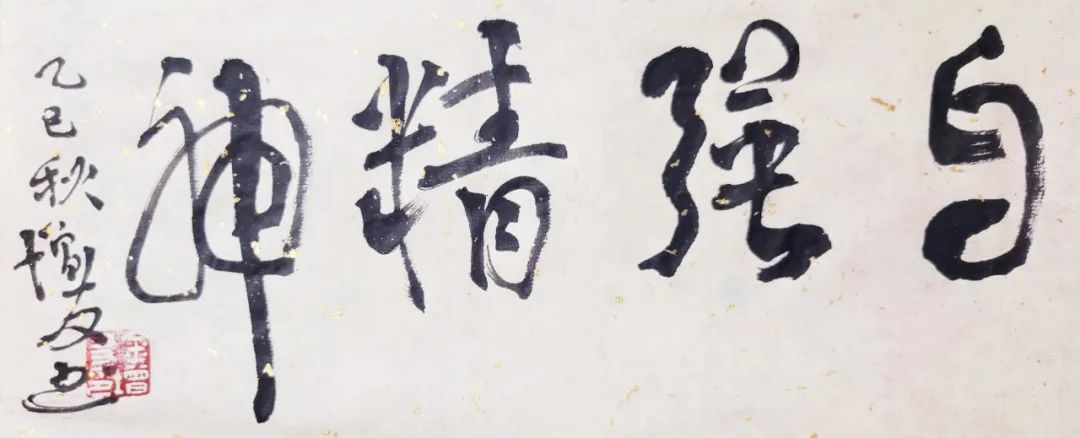 自强精神
乙巳秋增友书